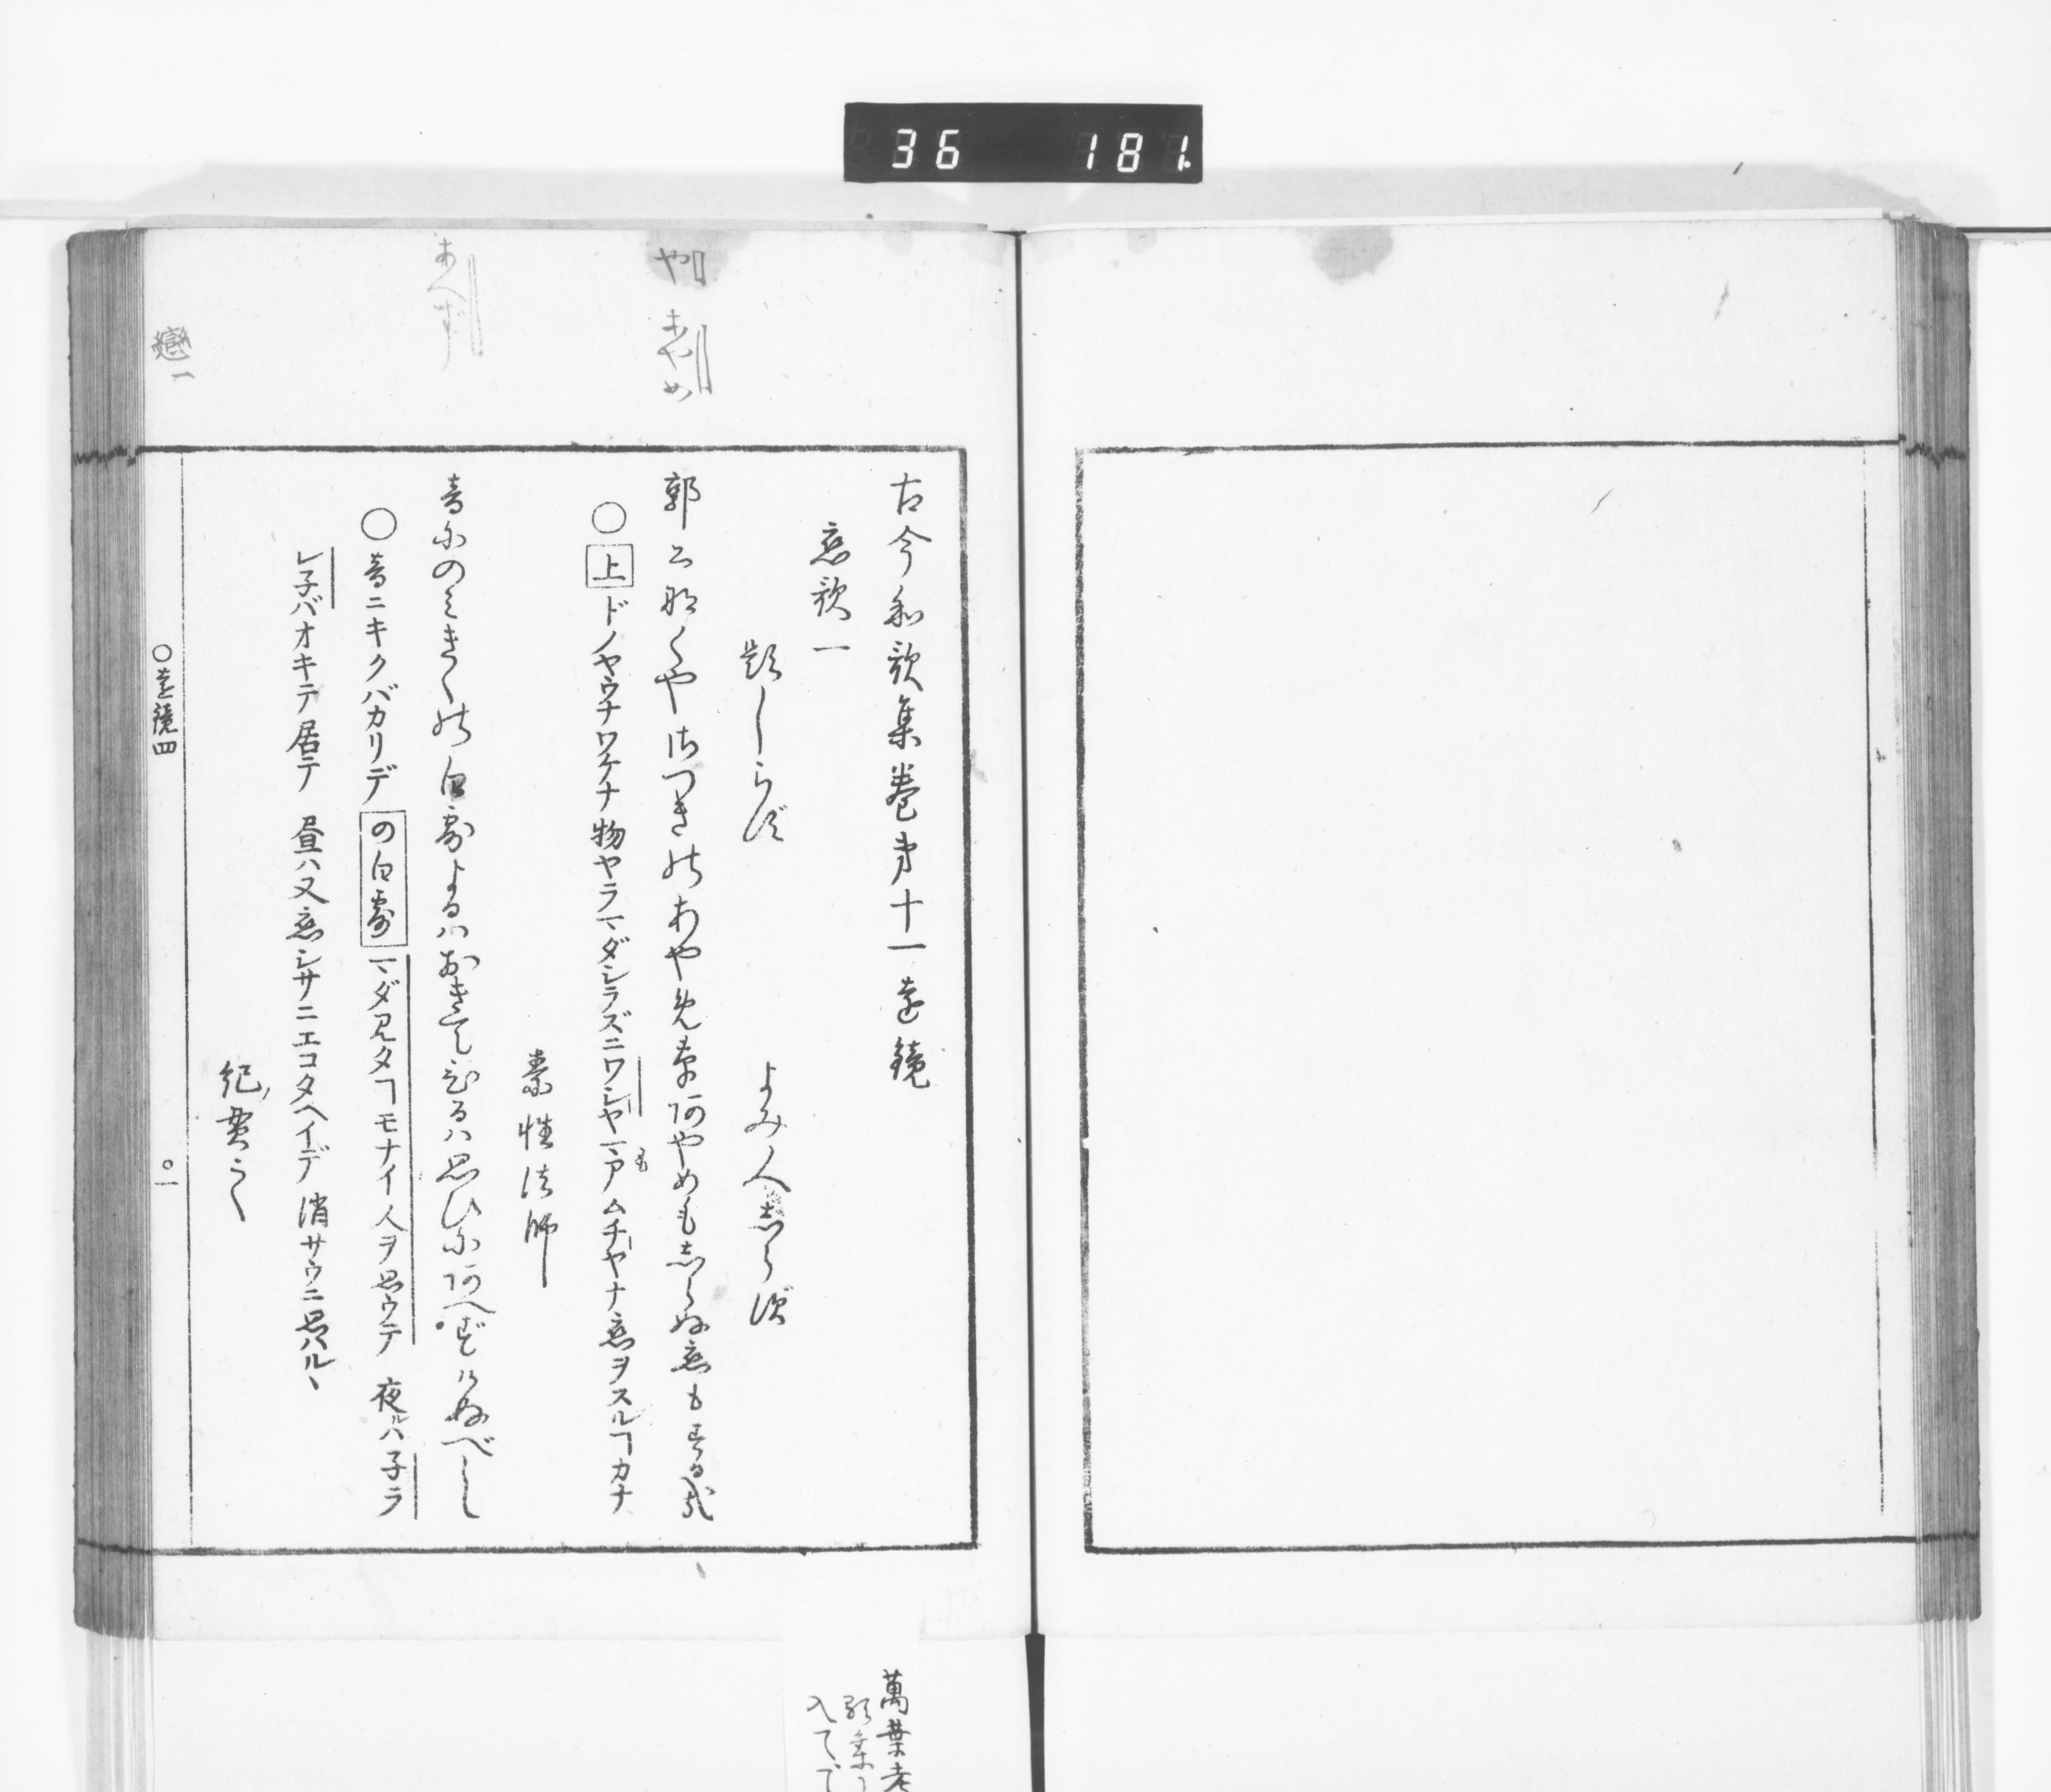 36 181
や
あやめ
あへず
戀一
古今和歌集巻第十一遠鏡
恋歌一
題しらず
よみ人志らず
郭公那くやさつきのあやめ草阿やめも志らぬ恋もする哉
○上ドノヤウナワケナ物ヤラマダシラズニワシヤマアムチヤナ恋ヲスルヿカナ
素性法師
音にのミきくの白露よるハおきてひるハ思ひに阿へずけぬべし
○音ニキクバカリデの白露マダ見タヿモナイ人ヲ思ウテ 夜ルハ子ラ
レ子バオキテ居テ 昼ハ又恋シサニエコタヘイデ 消サウニ思ハルヽ
紀貫之
○遠鏡四
○一
萬葉考
入て